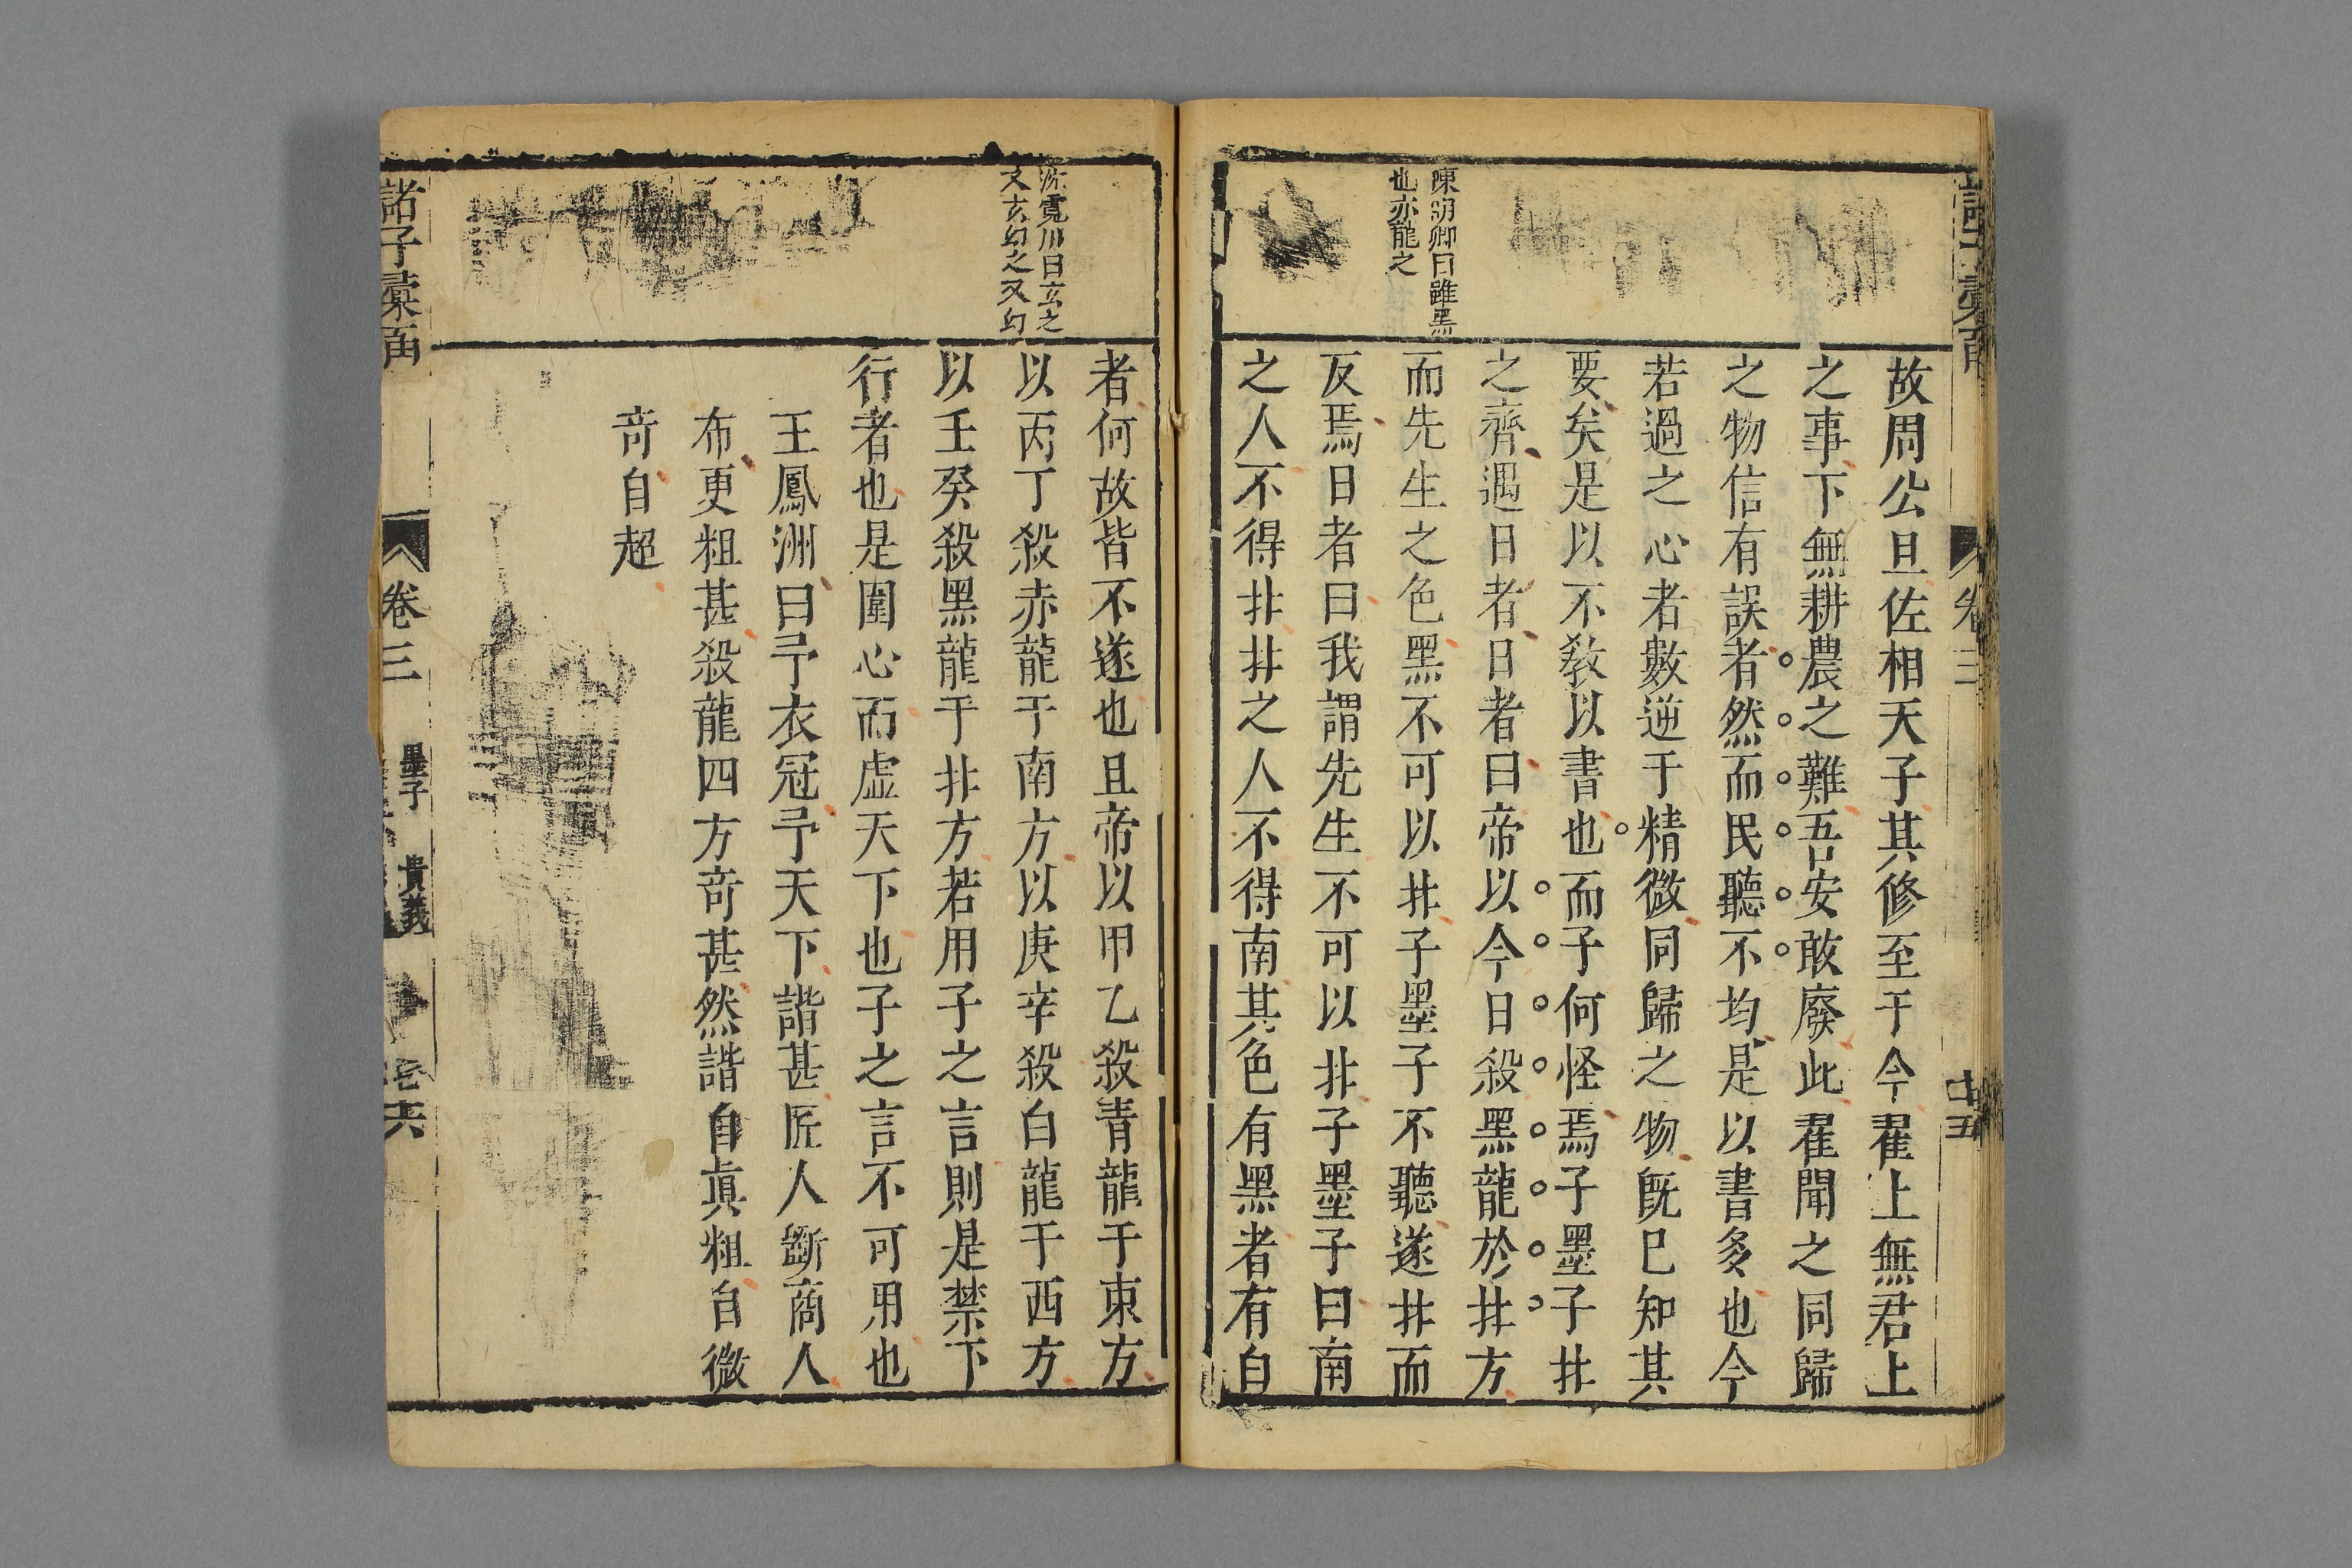 故周公旦佐相天子其修至于今翟上無君上
之事下無耕農之難吾安敢廢此翟聞之同歸
之物信有誤者然而民聽不均是以書多也今
若過之心者數逆于精微同歸之物旣已知其
要矣是以不敎以書也而子何怪焉子墨子北
之齊遇日者日者曰帝以今日殺黑龍於北方
而先生之色黑不可以北子墨子不聽遂北而
反焉日者曰我謂先生不可以北子墨子曰南
之人不得北北之人不得南其色有黑者有白
陳明卿曰雖黑
也亦龍之
卷三
者何故皆不遂也且帝以甲乙殺青龍于東方
以丙丁殺赤龍于南方以庚辛殺白龍于西方
以壬癸殺黑龍于北方若用子之言則是禁下
行者也是圍心而虛天下也子之言不可用也
王鳳洲曰予衣冠予天下諧甚匠人斲商人
布更粗甚殺龍四方竒甚然諧自眞粗自微
竒自超
霓川曰玄之
又玄幻之又幻
諸子彙函
卷三
墨子
貴義